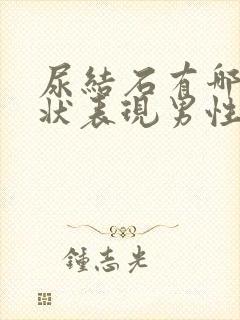 尿結石有哪
狀表現男性
鍾志光